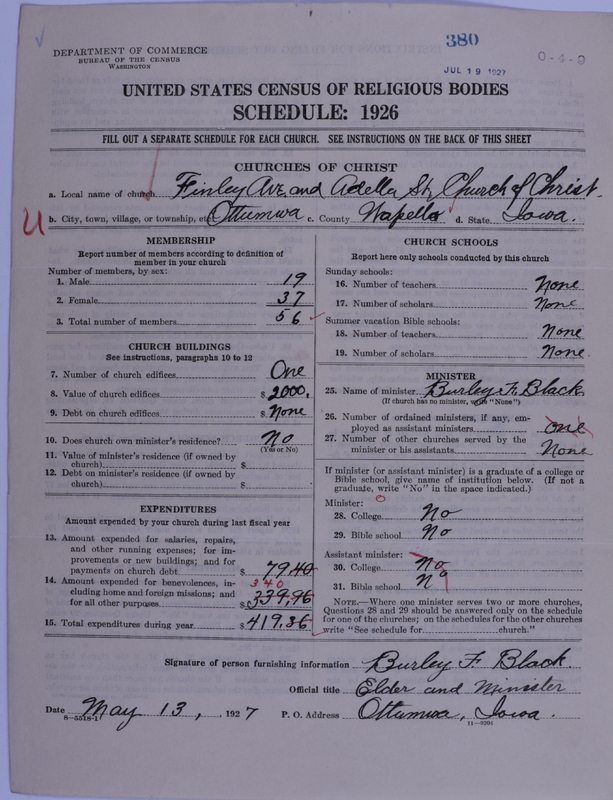 380
0-4-9
DEPARTMENT OF COMMERCE
BUREAU OF THE CENSUS
WASHINGTON
JUL 19 1927
UNITED STATES CENSUS OF RELIGIOUS BODIES
SCHEDULE: 1926
FILL OUT A SEPARATE SCHEDULE FOR EACH CHURCH. SEE INSTRUCTIONS ON THE BACK OF THIS SHEET
CHURCHES OF CHRIST
a. Local name of church Finley Ave. and Adella St. Church of Christ.
U b. City, town, village, or township, etc. Ottumwa c. County Wapello d. State Iowa.
MEMBERSHIP
Report number of members according to definition of
member in your church
Number of members, by sex:
1. Male 19
2. Female 37
3. Total number of members 56
CHURCH BUILDINGS
See instructions, paragraphs 10 to 12
7. Number of church edifices One
8. Value of church edifices $ 2000.
9. Debt on church edifices $ None
10. Does church own minister's residence? No
(Yes or No)
11. Value of minister's residence (if owned by
church) $
12. Debt on minister's residence (if owned by
church) $
EXPENDITURES
Amount expended by your church during last fiscal year
13. Amount expended for salaries, repairs,
and other running expenses; for im-
provements or new buildings; and for
payments on church debt $ 79.40
14. Amount expended for benevolences, in- 340
cluding home and foreign missions; and
for all other purposes $ 339.96
15. Total expenditures during year $ 419.36
CHURCH SCHOOLS
Report here only schools conducted by this church
Sunday schools:
16. Number of teachers None
17. Number of scholars None
Summer vacation Bible schools:
18. Number of teachers None
19. Number of scholars None.
MINISTER
25. Name of minister Burley F. Black
(If church has no minister, write "None")
26. Number of ordained ministers, if any, em-
ployed as assistant ministers one
27. Number of other churches served by the
minister or his assistants None
If minister (or assistant minister) is a graduate of a college or
Bible school, give name of institution below. (If not a
graduate, write "No" in the space indicated.)
Minister:
28. College No
29. Bible school No
Assistant minister:
30. College No
31. Bible school No
NOTE.—Where one minister serves two or more churches,
Questions 28 and 29 should be answered only on the schedule
for one of the churches; on the schedules for the other churches
write "See schedule for church."
Signature of person furnishing information Burley F. Black
Official title Elder and Minister
Date May 13, 1927 P. O. Address Ottumwa, Iowa.
8-5518-1